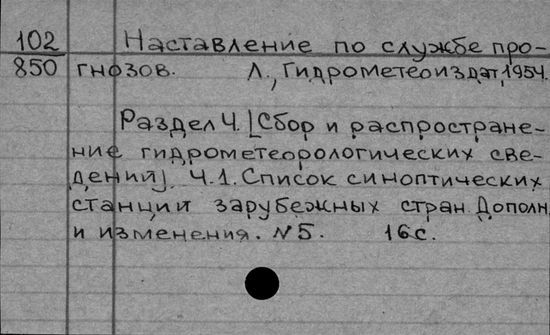 102 Наставление по службе про-
850 гнозов. Л., Гидрометеоиздат, 1954.
Раздел 4. [Сбор и распростране-
ние гидрометеорологических све-
дений]. Ч.1. Список синоптических
станций зарубежных стран. Дополн.
и изменения. N5. 16с.